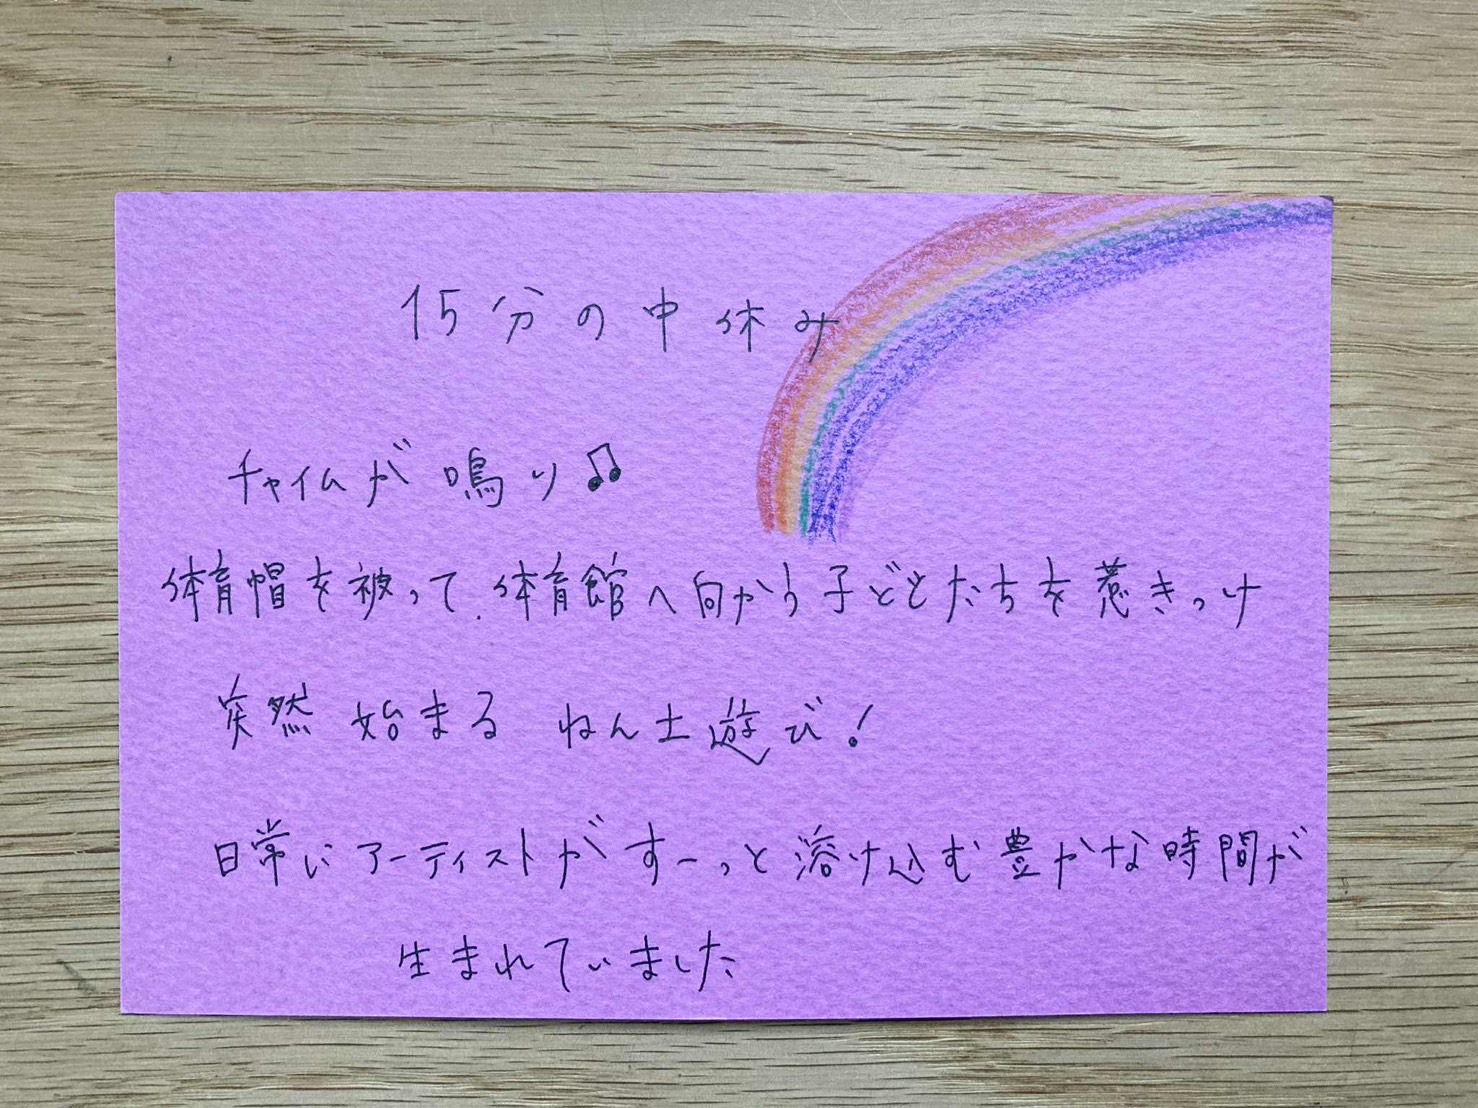 15分の中休み
チャイムが鳴り♫
体育帽を被って、体育館へ向かう子どもたちを惹きつけ
突然 始まる ねん土遊び!
日常にアーティストがすーっと溶け込む豊かな時間が
生まれていました